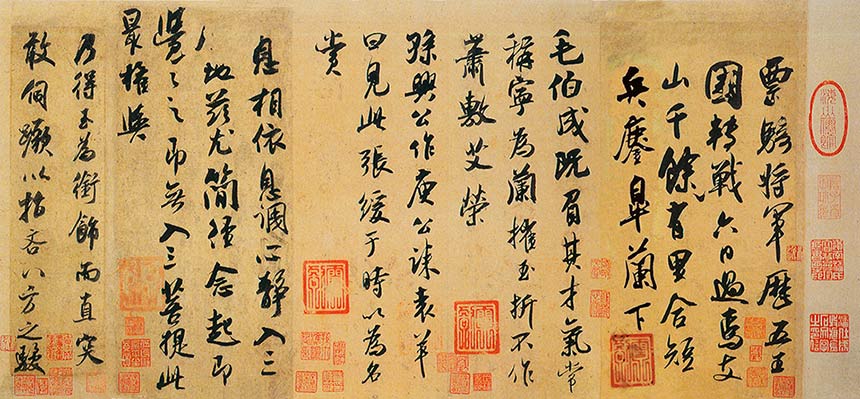 票騎將軍歷五王
國轉戰六日過焉支
山千餘有里合短
兵鏖皋蘭下
毛伯成既負其才氣常
稱寧為蘭摧玉折不作
蕭敷艾榮
孫興公作庾公誄袁羊
曰見此張緩于時以為名
賞
息相依息調心靜入三
地茲尤簡徑念起即
覺覺之即無入三菩提此
最捷
乃得玉為銜飾而直突
蹶以指吝八方之駿